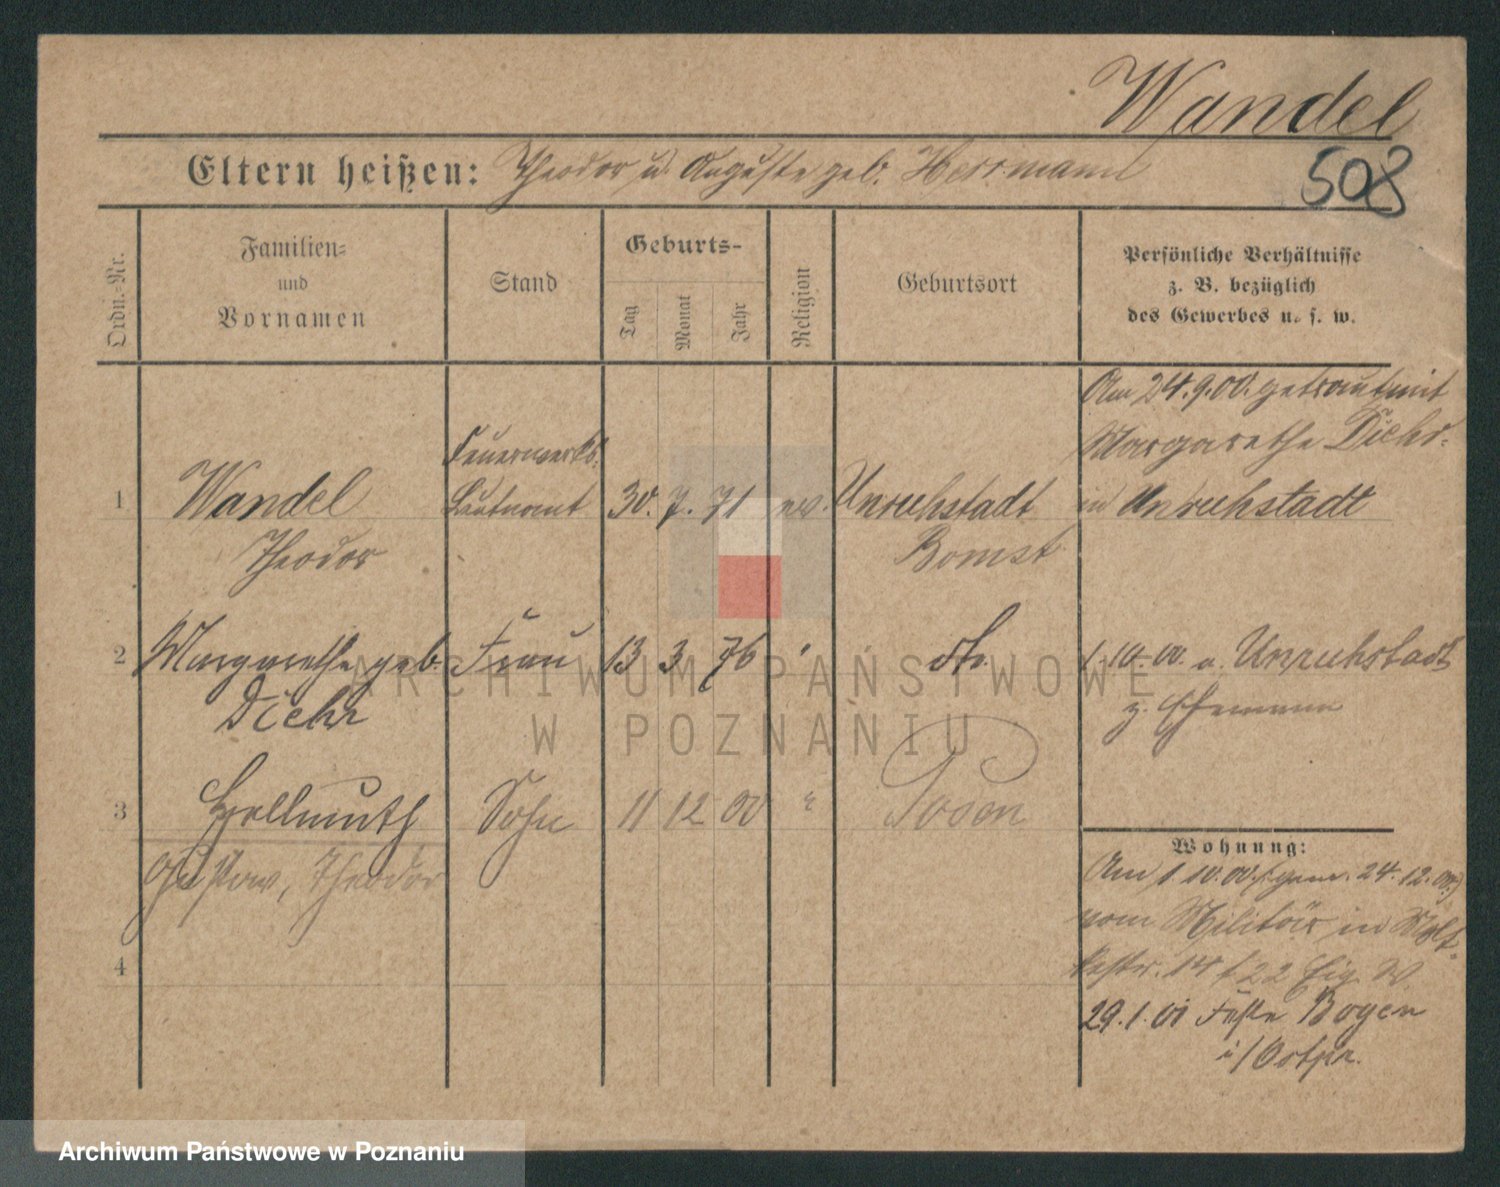 Wandel
508
Eltern heißen: Theodor u. Auguste geb. Herrmann
Ordn.-Nr.
Familien-
und
Vornamen
Stand
Geburts-
Tag
Monat
Jahr
Religion
Geburtsort
Persönliche Verhältnisse
z. B. bezüglich
des Gewerbes u. s. w.
1
Wandel
Theodor
Feuerwerks-
Leutnant
30. 7. 71
ev.
Unruhstadt
Bomst
Am 24.9.00. getraut mit
Margarethe Diehr
in Unruhstadt
2
Margarethe geb.
Diehr
Frau
13 3 76
"
do.
1.10.00. a. Unruhstadt
z. Ehemann
3
Hellmuth
Gustav, Theodor
Sohn
11 12 00
"
Posen
4
Wohnung:
Am 1.10.00. (gem. 24.12.00.)
vom Militär in Molt-
kestr. 14 / 22 W
29.1.01 Feste Boyen
i/Ostpr.
ARCHIWUM PAŃSTWOWE
W POZNANIU
Archiwum Państwowe w Poznaniu